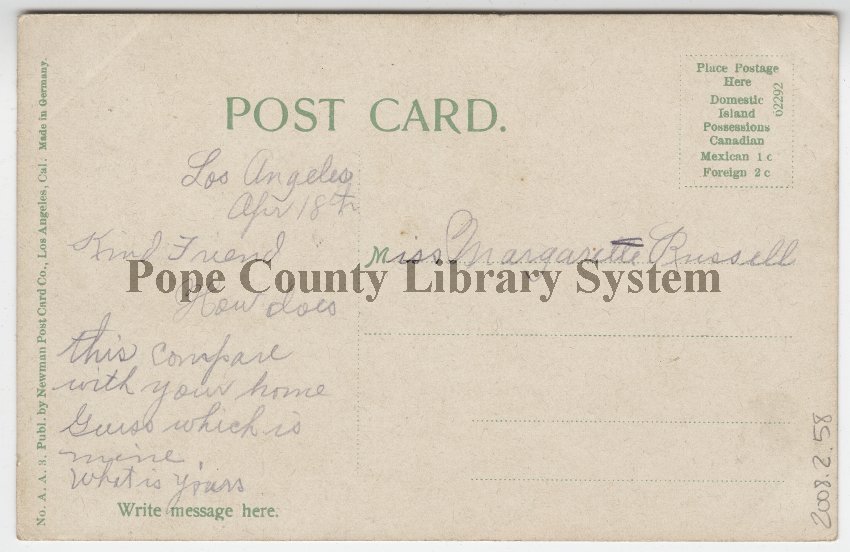 POST CARD.
Place Postage
Here
Domestic
Island
Possessions
Canadian
Mexican 1 c
Foreign 2 c
02292
No. A. A. 3. Publ. by Newman Post Card Co., Los Angeles, Cal. Made in Germany.
Los Angeles
Apr 18th
Kind Friend
How does
this compare
with your home
Guess which is
mine
What is yours
Write message here.
Miss. Margarette Russell
Pope County Library System
2008.2.58